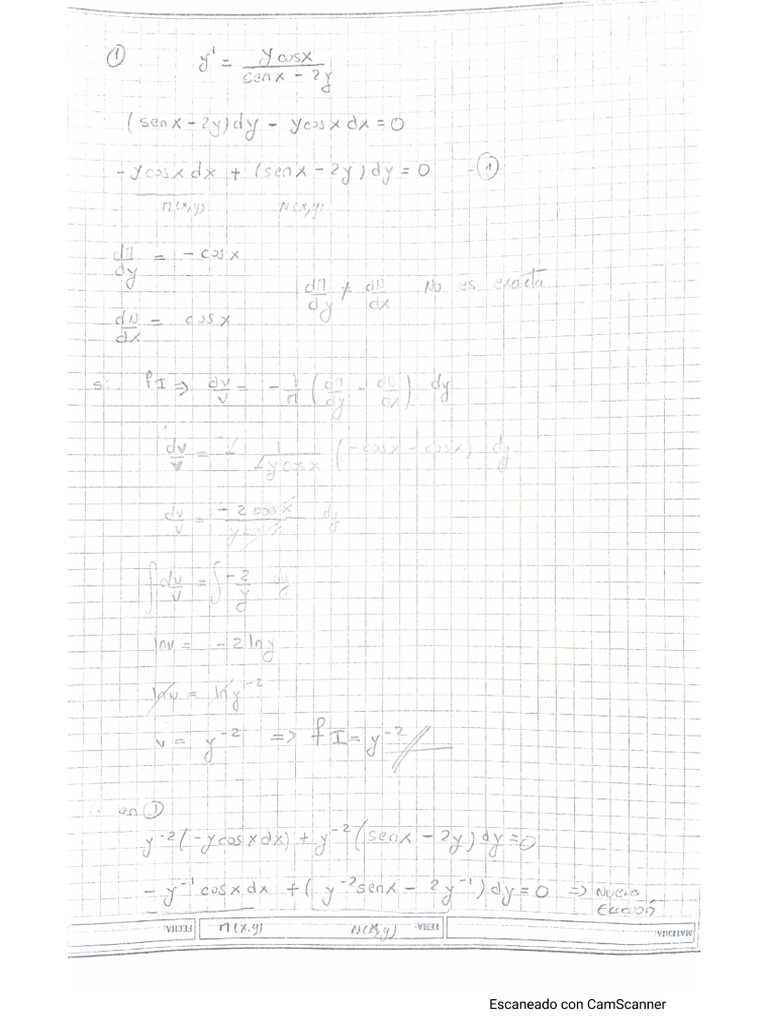 ① y' = y cosx / senx - 2y
(senx - 2y)dy - ycosx dx = 0
-ycosx dx + (senx - 2y)dy = 0 - ①
M(x,y) N(x,y)
dM/dy = - cosx
dM/dy ≠ dN/dx No es exacta
dN/dx = cosx
si: fI ⇒ dv/v = - 1/M (dM/dy - dN/dx) dy
dv/v = - 1/-ycosx (-cosx - cosx) dy
dv/v = -2cosx/ycosx dy
∫ dv/v = ∫ -2/y dy
lnv = -2lny
lnv = lny⁻²
v = y⁻² => fI = y⁻²
en ①
y⁻²(-ycosxdx) + y⁻²(senx - 2y)dy = 0
-y⁻¹cosxdx + (y⁻²senx - 2y⁻¹)dy = 0 => Nueva
Ecuación
M(x,y) N(x,y)
FECHA: TEMA: MATERIA:
Escaneado con CamScanner